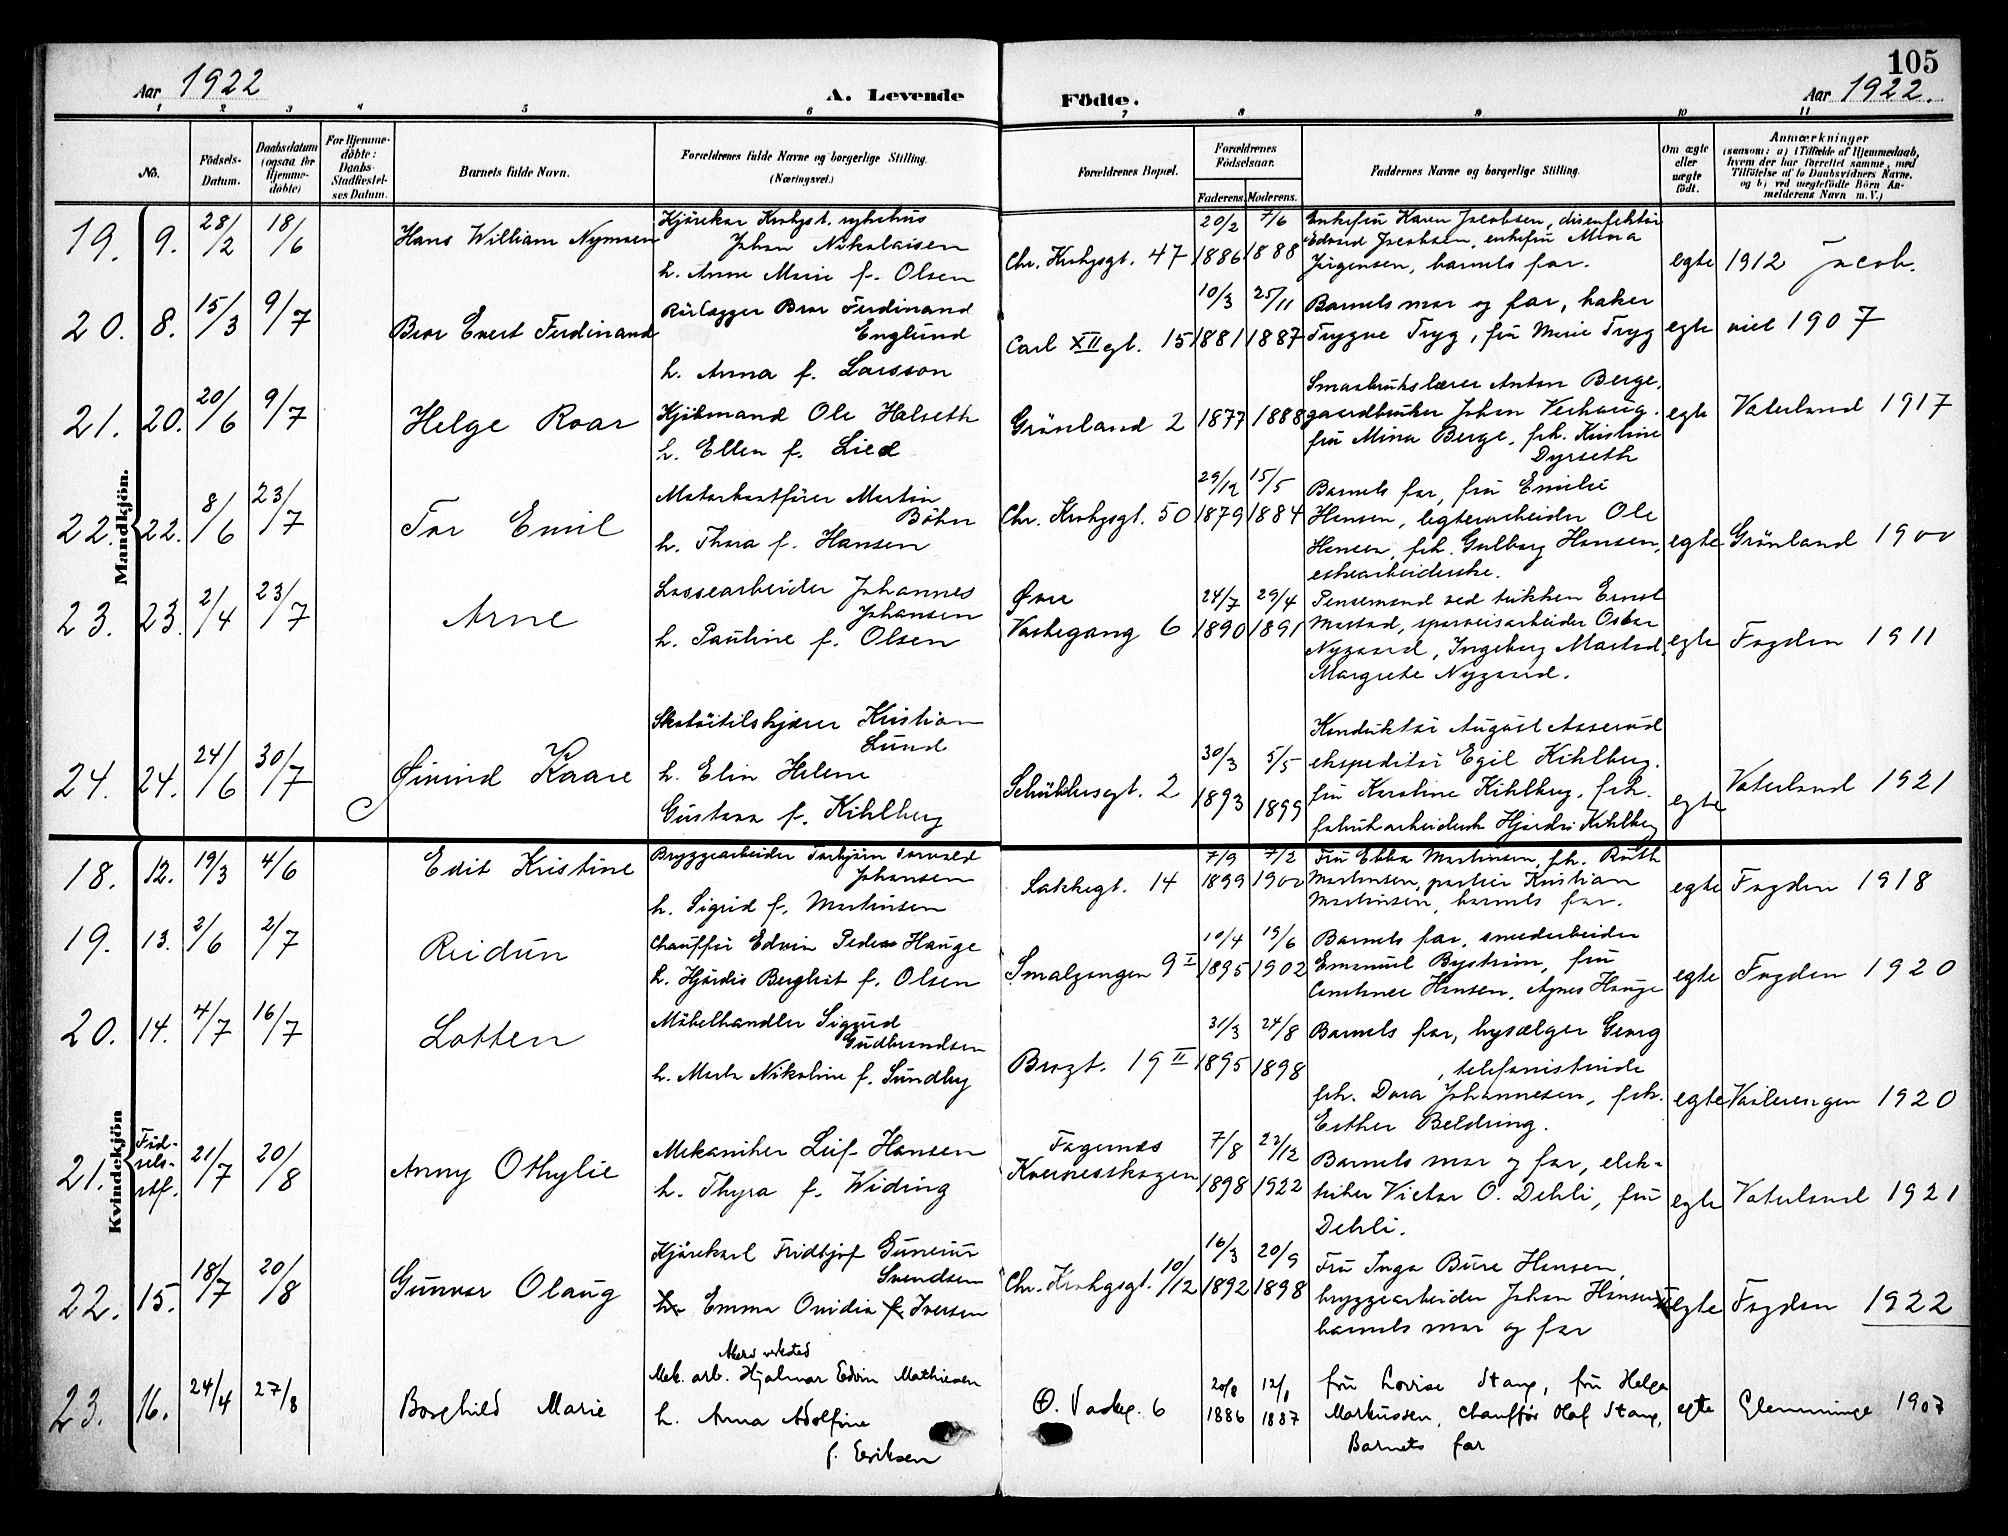 105
Aar 1922
A. Levende
Födte.
Aar 1922.
1 2 3 4 5 6 7 8 9 10 11
No.
Födsels-
Datum.
Daabsdatum
(ogsaa for
Hjemme-
döbte)
For Hjemme-
döbte:
Daabs-
Stadfæstel-
ses Datum.
Barnets fulde Navn.
Forældrenes fulde Navne og borgerlige Stilling.
(Næringsvei.)
Forældrenes Bopæl.
Forældrenes
Födselsaar.
Faderens. Moderens.
Faddernes Navne og borgerlige Stilling.
Om ægte
eller
uægte
födt.
Anmærkninger
(saasom: a) i Tilfælde af Hjemmedaab,
hvem der har forrettet samme, med
Tilföielse af to Daabsvidners Navne.
og b) ved uægtefödte Börn An-
melderens Navn m. V.)
Mandkjön.
19. 9. 28/2 18/6
Hans William Nymoen
Kjörekar Krohgst. sykehus
Johan Nikolaisen
h. Anne Marie f. Olsen
Chr. Krohgsgt. 47
20/2 1886
7/6 1888
Enkefru Karen Jacobsen, disenfektör
Edvard Jacobsen, enkefru Mina
Jörgensen, barnets far.
egte
1912 Jacob.
20. 8. 15/3 9/7
Bror Evert Ferdinand
Rörlægger Bror Ferdinand
Englund
h. Anna f. Larsson
Carl XII gt. 15
10/3 1881
25/11 1887
Barnets mor og far, baker
Trygve Tryg, fru Marie Tryg
egte
viet 1907
21. 20. 20/6 9/7
Helge Roar
Kjöbmand Ole Halseth
h. Ellen f. Lied
Grönland 2
1877 1888
Smaabrukslærer Anton Berge,
gaardbruker Johan Verhaug.
fru Mina Berge, frk. Kristine
Dyrseth
egte
Vaterland 1917
22. 22. 8/6 23/7
Tor Emil
Motorbaatförer Martin
Böhn
h. Thora f. Hansen
Chr. Krohgsgt. 50
29/12 1879
15/5 1884
Barnets far, fru Emilie
Hansen, legterarbeider Ole
Hansen, frk. Gulborg Hansen,
eskearbeiderske.
egte
Grönland 1900
23. 23. 2/4 23/7
Arne
Lossearbeider Johannes
Johansen
h. Pauline f. Olsen
Øvre
Vaskegang 6
24/7 1890
29/4 1891
Pensemand ved trikken Ernst
Mastad, sporveisarbeider Oskar
Nygaard, Ingeborg Mastad,
Margrete Nygaard.
egte
Fagden 1911
24. 24. 24/6 30/7
Øivind Kaare
Skotöitilskjærer Kristian
Lund
h. Elin Helene
Gustava f. Kihlberg
Schüblersgt. 2
30/3 1893
5/5 1899
Konduktör August Asserud
ekspeditör Egil Kihlberg.
fru Karoline Kihlberg, frk.
fabrikarbeidersk Hjördis Kihlberg
egte
Vaterland 1921
Kvindekjön
18. 12. 19/3 4/6
Edit Kristine
Bryggearbeider Torbjörn Torvald
Johansen
h. Sigrid f. Martinsen
Lakkegt. 14
7/9 1899
7/2 1900
Fru Ebba Martinsen, frk. Ruth
Martinsen, portier Kristian
Martinsen, barnets far.
egte
Fagden 1918
19. 13. 2/6 2/7
Reidun
Chaufför Edvin Peder Hauge
h. Hjördis Bergliot f. Olsen
Smalgangen 9 I
10/4 1895
19/6 1902
Barnets far, smedarbeider
Emanuel Byström, fru
Hansen, Agnes Hauge
egte
Fagden 1920
20. 14. 4/7 16/7
Lotten
Möbelhandler Sigurd
Gudbrandsen
h. Marta Nikoline f. Sundby
Brogt. 19 II
31/3 1895
24/8 1898
Barnets far, bysælger Georg
, telefonistinde
frk. Dora Johannesen, frk.
Esther Beldring.
egte
Vaalerengen 1920
21. Föd-
sels-
stf. 21/7 20/8
Anny Othylie
Mekaniker Leif Hansen
h. Thyra f. Widing
Fagernæs
Kvernesskogen
7/8 1898
22/12 1922
Barnets mor og far, elek-
triker Victor O. Dehli, fru
Dehli.
egte
Vaterland 1921
22. 15. 18/7 20/8
Gunvor Olaug
Kjörekarl Fridtjof Gunerius
Svendsen
h. Emma Ovidia f. Iversen
Chr. Krohgsgt. 10/12
16/3 1892
20/9 1898
Fru Inga Bure Hansen,
bryggearbeider Johan Hansen
barnets mor og far
egte
Fagden 1922
23. 16. 24/4 27/8
Borghild Marie
Akers verksted
Mek. arb. Hjalmar Edvin Mathiesen
h. Anna Adolfine
f. Eriksen
Ø. Vaskeg. 6
20/8 1886
12/1 1887
fru Lovise Stang, fru Helga
Markussen, Chaufför Olaf Stang,
Barnets far
egte
Glemminge 1907